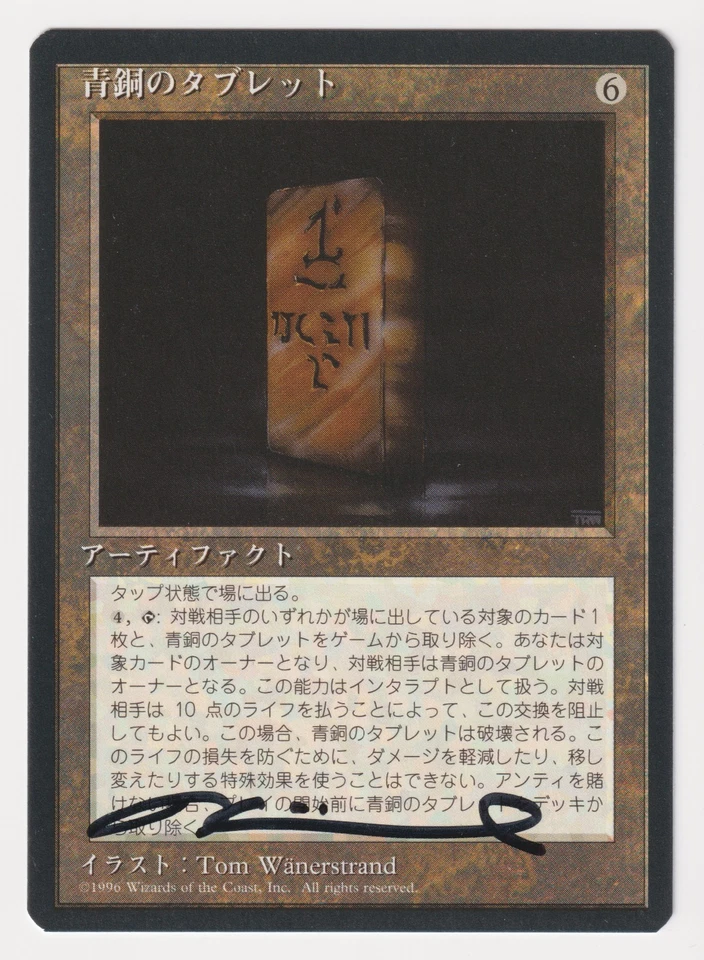 青銅のタブレット
6
アーティファクト
タップ状態で場に出る。
4, : 対戦相手のいずれかが場に出している対象のカード1
枚と、青銅のタブレットをゲームから取り除く。あなたは対
象カードのオーナーとなり、対戦相手は青銅のタブレットの
オーナーとなる。この能力はインタラプトとして扱う。対戦
相手は 10 点のライフを払うことによって、この交換を阻止
してもよい。この場合、青銅のタブレットは破壊される。こ
のライフの損失を防ぐために、ダメージを軽減したり、移し
変えたりする特殊効果を使うことはできない。アンティを賭
けない場合、プレイの開始前に青銅のタブレットをデッキか
ら取り除く
イラスト：Tom Wänerstrand
©1996 Wizards of the Coast, Inc. All rights reserved.